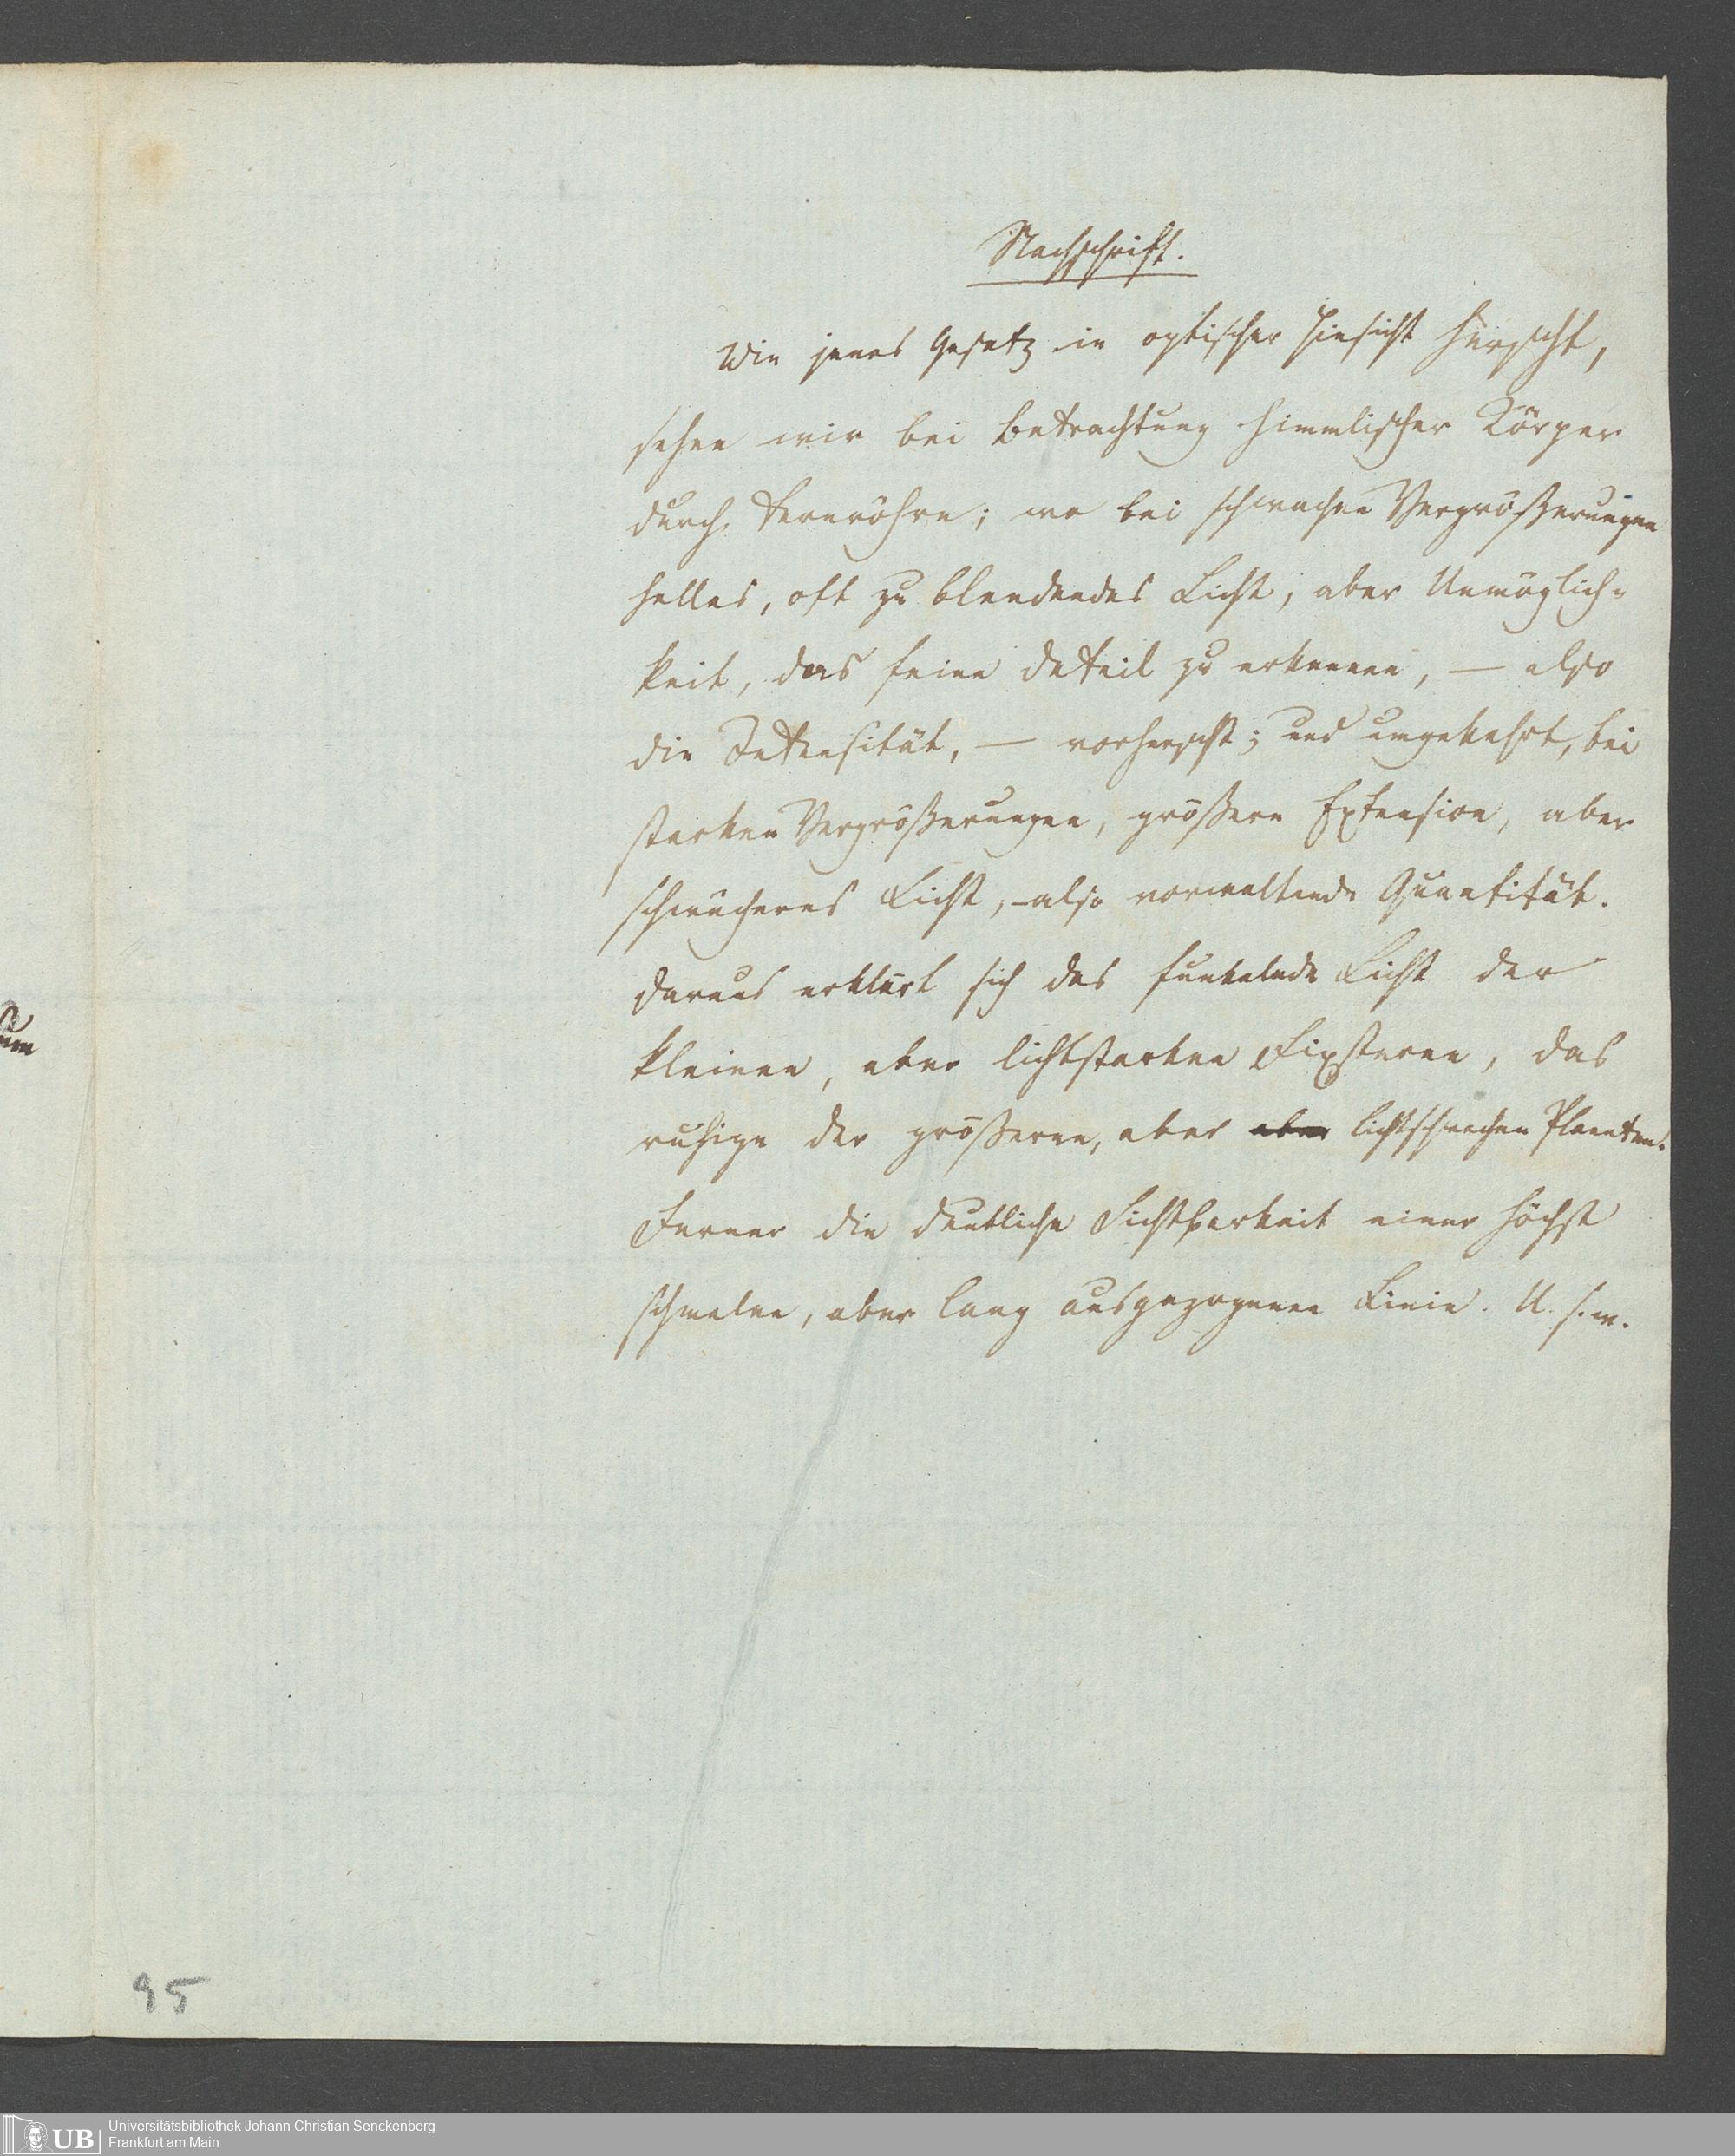 Nachschrift.
Wie jenes Gesetz in optischer Hinsicht herscht,
sehen wir bei Betrachtung himmlischer Körper
durch Fernröhre; wo bei schwachen Vergrößerungen
helles, oft zu blendendes Licht, aber Unmöglich-
keit, das feine Detail zu erkennen, — also
die Intensität, — vorherscht; und umgekehrt, bei
starken Vergrößerungen, größere Extension, aber
schwächeres Licht, - also vorwaltende Quantität.
Daraus erklärt sich das funkelnde Licht der
kleinen, aber lichtstarken Fixsterne, das
ruhige der größeren, aber aber lichtschwachen Planeten.
Ferner die deutliche Sichtbarkeit einer höchst
schmalen, aber lang ausgezogenen Linie. U. s. w.
um
95
UB
Universitätsbibliothek Johann Christian Senckenberg
Frankfurt am Main